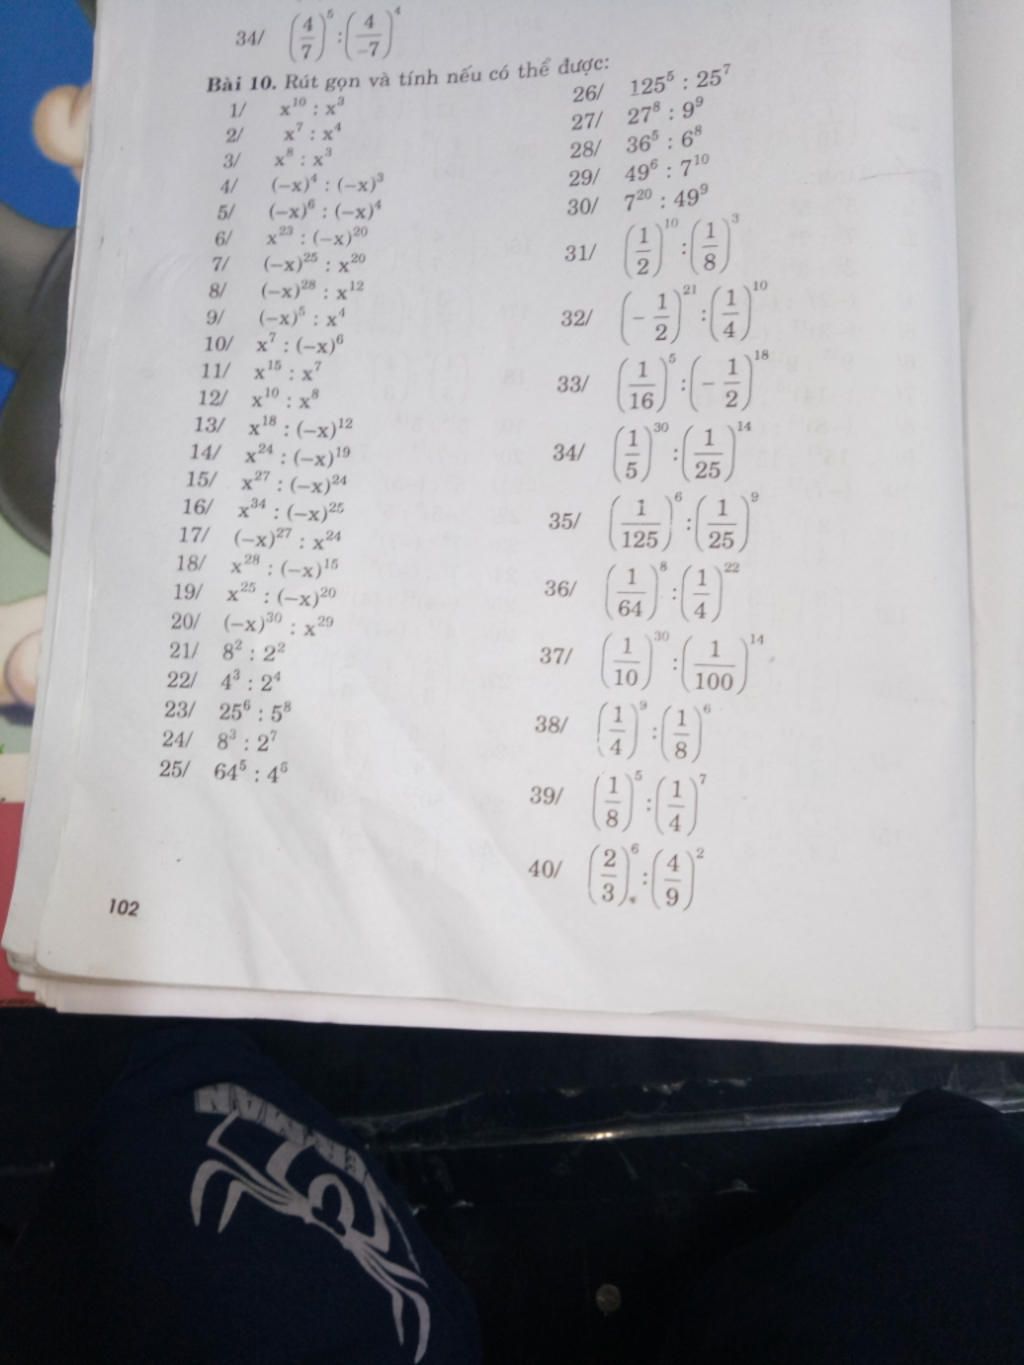 34/ (4/7)⁵ : (4/-7)⁴
Bài 10. Rút gọn và tính nếu có thể được:
1/ x¹⁰ : x³
2/ x⁷ : x⁴
3/ x⁸ : x³
4/ (–x)⁴ : (–x)³
5/ (–x)⁶ : (–x)⁴
6/ x²³ : (–x)²⁰
7/ (–x)²⁵ : x²⁰
8/ (–x)²⁸ : x¹²
9/ (–x)⁵ : x⁴
10/ x⁷ : (–x)⁶
11/ x¹⁵ : x⁷
12/ x¹⁰ : x⁸
13/ x¹⁸ : (–x)¹²
14/ x²⁴ : (–x)¹⁹
15/ x²⁷ : (–x)²⁴
16/ x³⁴ : (–x)²⁵
17/ (–x)²⁷ : x²⁴
18/ x²⁸ : (–x)¹⁵
19/ x²⁵ : (–x)²⁰
20/ (–x)³⁰ : x²⁹
21/ 8² : 2²
22/ 4³ : 2⁴
23/ 25⁶ : 5⁸
24/ 8³ : 2⁷
25/ 64⁵ : 4⁵
26/ 125⁵ : 25⁷
27/ 27⁸ : 9⁹
28/ 36⁵ : 6⁸
29/ 49⁶ : 7¹⁰
30/ 7²⁰ : 49⁹
31/ (1/2)¹⁰ : (1/8)³
32/ (–1/2)²¹ : (1/4)¹⁰
33/ (1/16)⁵ : (–1/2)¹⁸
34/ (1/5)³⁰ : (1/25)¹⁴
35/ (1/125)⁶ : (1/25)⁹
36/ (1/64)⁸ : (1/4)²²
37/ (1/10)³⁰ : (1/100)¹⁴
38/ (1/4)⁹ : (1/8)⁶
39/ (1/8)⁵ : (1/4)⁷
40/ (2/3)⁶ : (4/9)²
102